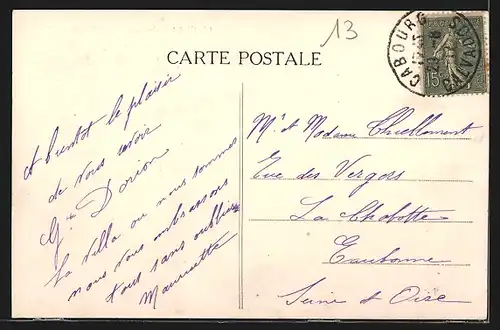 13
CARTE POSTALE
CABOURG
CALVADOS
15
A bientot le plaisir
de vous revoir
Gds Dorion
La villa ou nous sommes
nous vous embrassons
tous sans oublier
Mauricette
Mr et Madame
Rue des Vergers
La Chobotte
Eaubonne
Seine et Oise